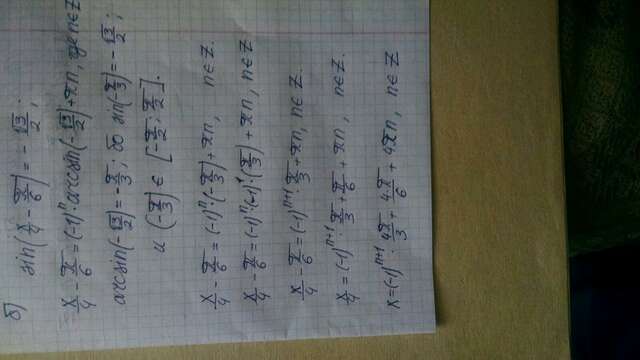 б) sin(x/4 - π/6) = - √3/2 ;
x/4 - π/6 = (-1)ⁿ · arcsin(-√3/2) + πn, де n∈Z
arcsin(-√3/2) = -π/3 ; бо sin(-π/3) = - √3/2 ;
и (-π/3) ∈ [-π/2 ; π/2].
x/4 - π/6 = (-1)ⁿ · (-π/3) + πn, n∈Z.
x/4 - π/6 = (-1)ⁿ · (-1)¹ · (π/3) + πn, n∈Z.
x/4 - π/6 = (-1)ⁿ⁺¹ · π/3 + πn, n∈Z.
x/4 = (-1)ⁿ⁺¹ · π/3 + π/6 + πn, n∈Z.
x = (-1)ⁿ⁺¹ · 4π/3 + 4π/6 + 4πn, n∈Z